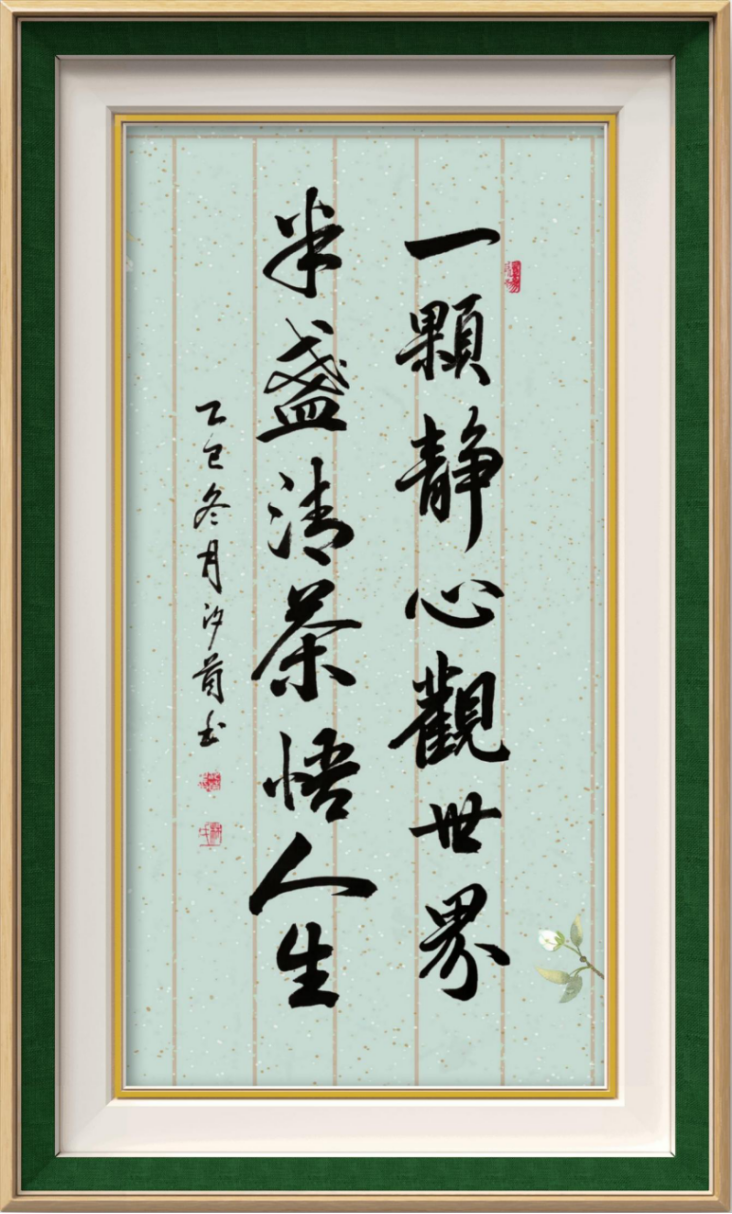 一顆静心觀世界
半盞清茶悟人生
乙巳冬月汐蘭书